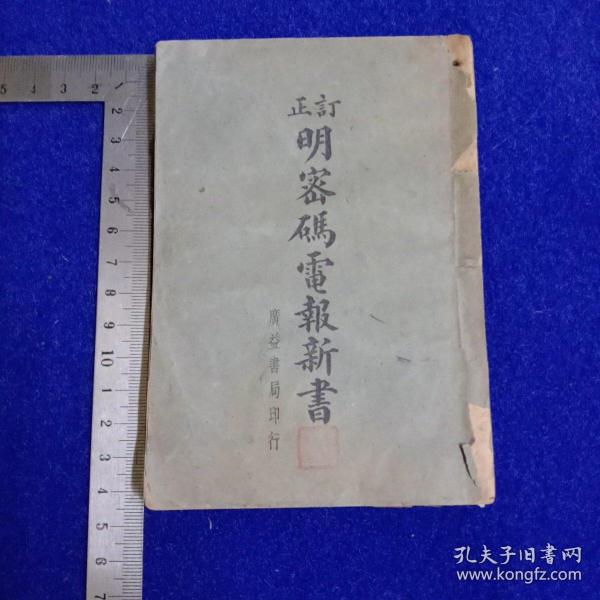 訂正
明密碼電報新書
廣益書局印行
5 4 3 2 1
1 2 3 4 5 6 7 8 9 10 1 2 3 4 5 6 7
孔夫子旧書网
www.kongfz.com